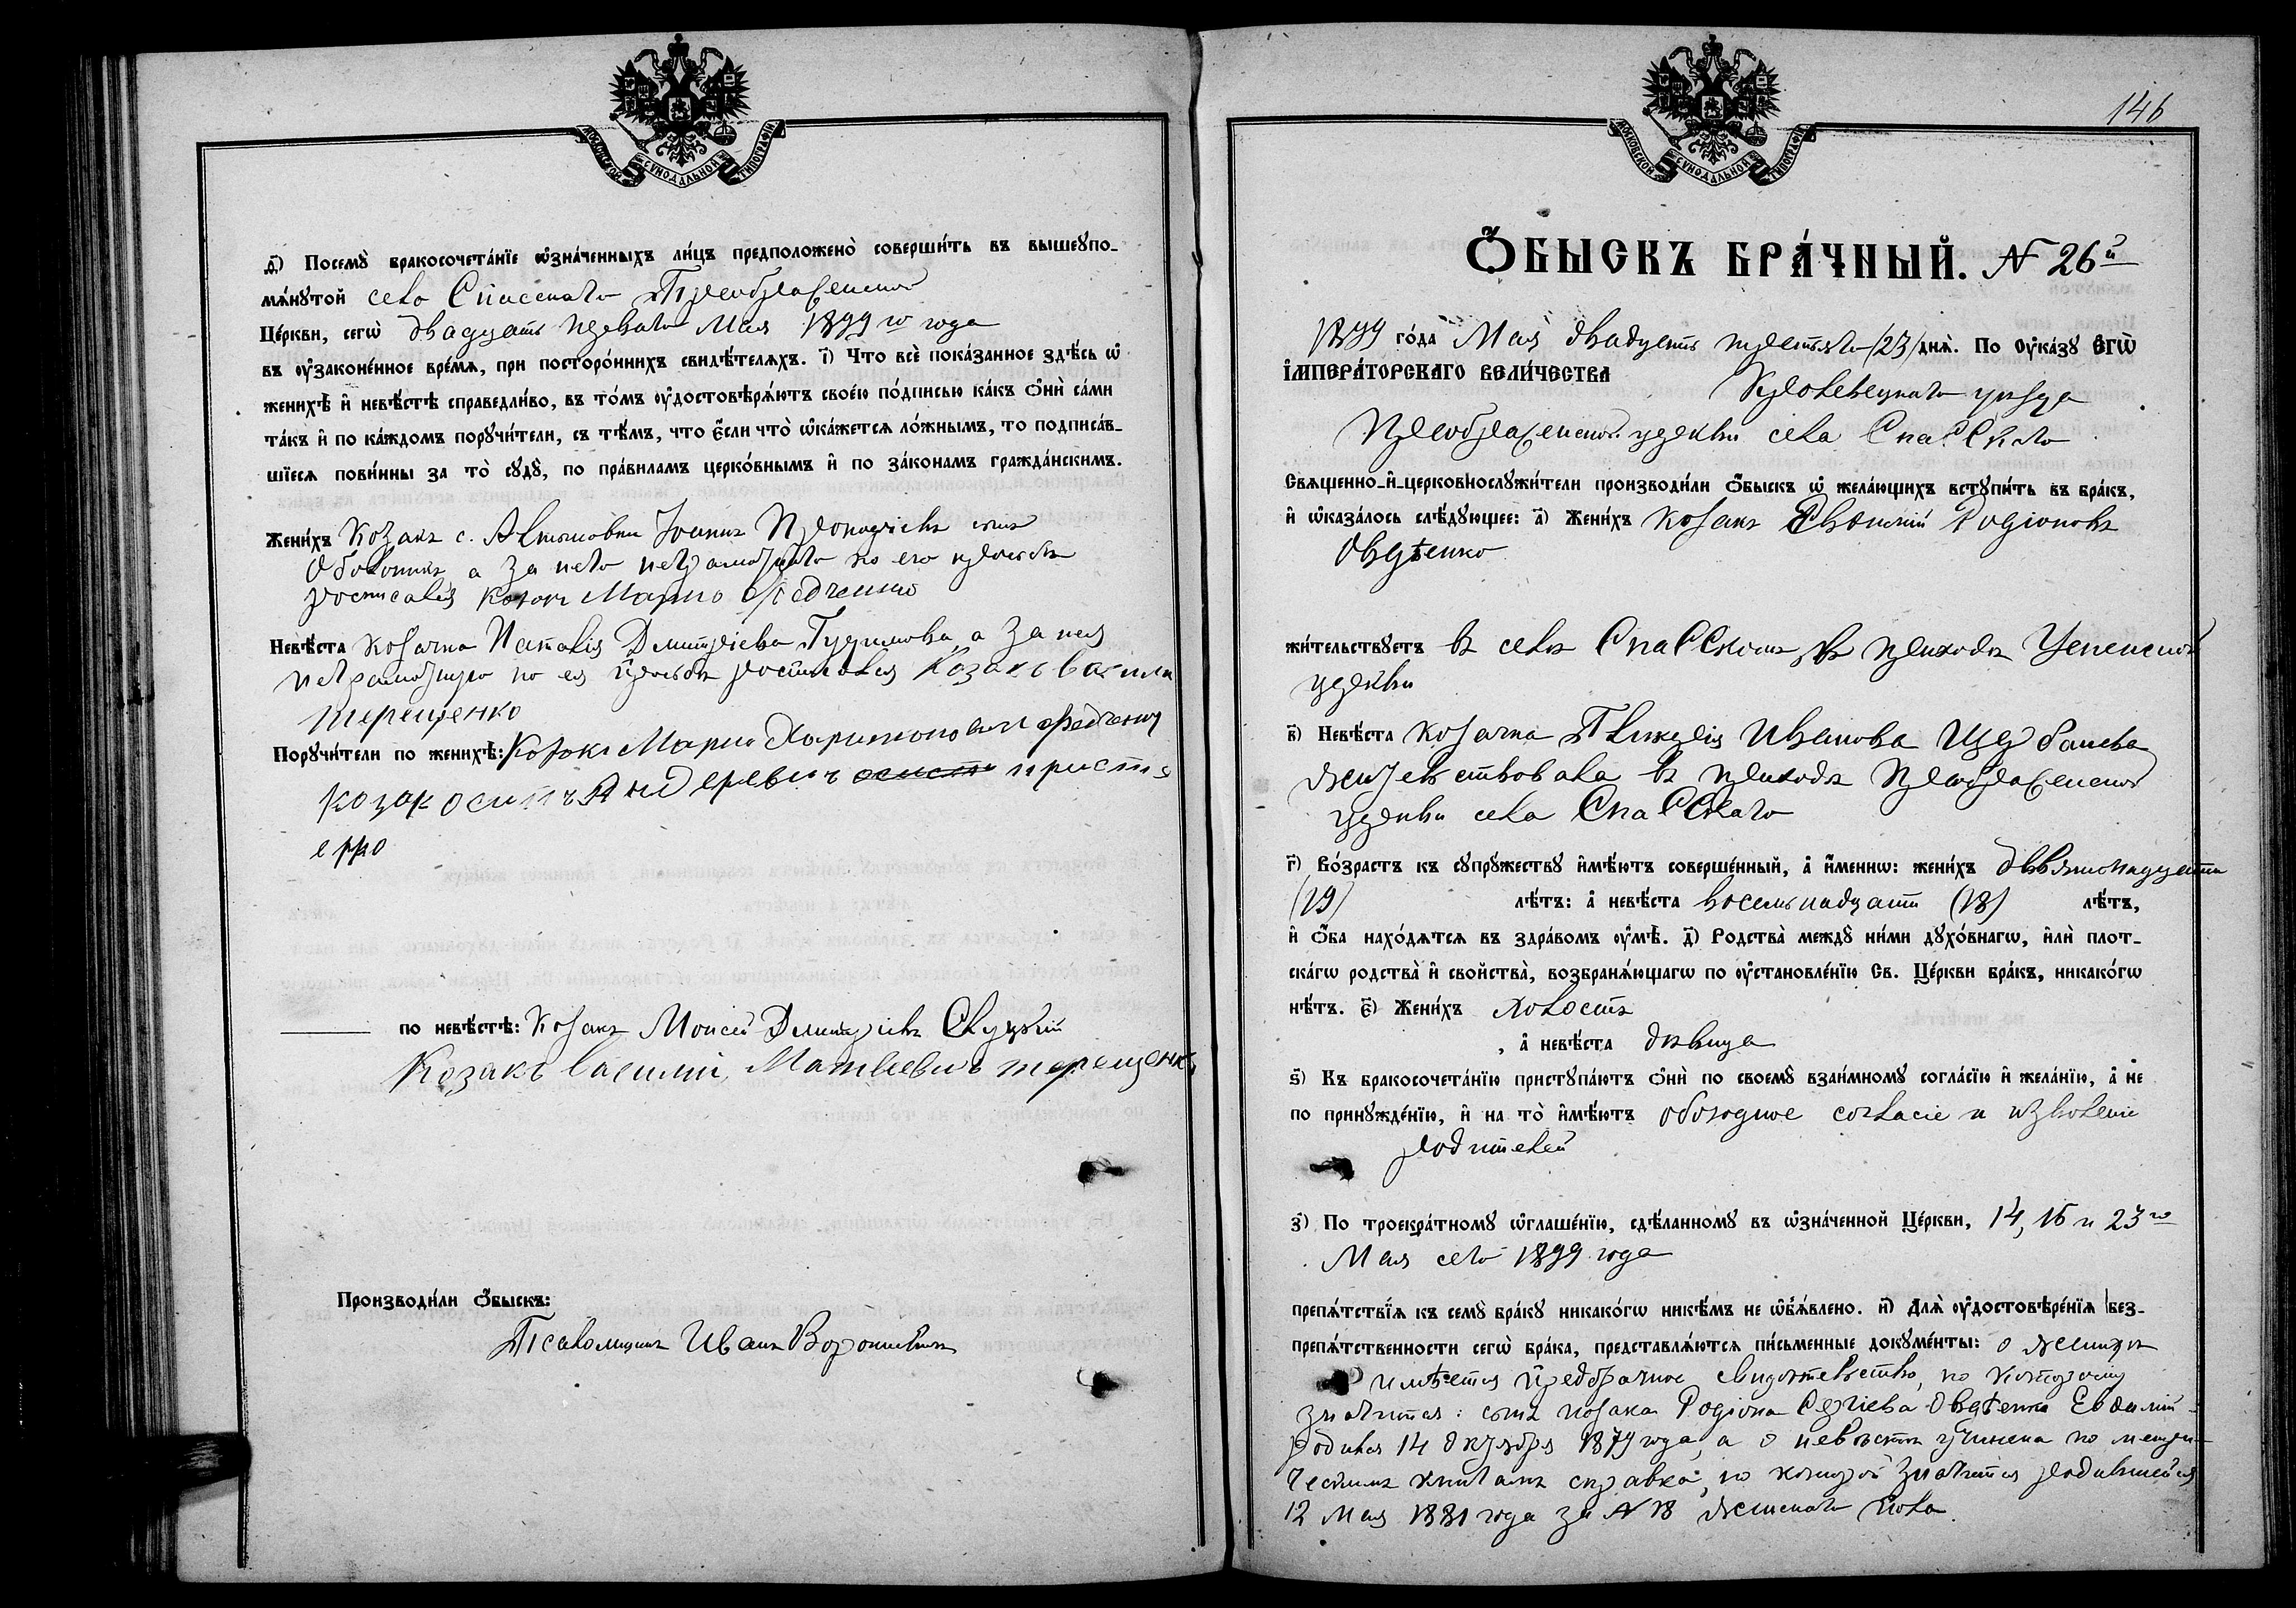 МОСКОВСКОЙ СѴНОДАЛЬНОЙ ТИПОГРАФІИ
д҃) Посемꙋ̀ бракосочета́нїе ѡ҆зна́ченныхъ ли́цъ предположено̀ соверши́ть въ вышеꙋпо-
мѧ́нꙋтой села Спасскаго Преображенской
Це́ркви, сегѡ̀ двадцать перваго Мая 1899 го года
въ ᲂу҆законе́нное вре́мѧ, при посторо́ннихъ свидѣ́телѧхъ. і҃) Что̀ всѐ пока́занное здѣ́сь ѡ҆
женихѣ̀ и҆ невѣ́стѣ справедли́во, въ то́мъ ᲂу҆достовѣрѧ́ютъ свое́ю по́дписью ка́къ ѻ҆нѝ са́ми
та́къ и҆ по ка́ждомъ порꙋчи́тели, съ тѣ́мъ, что є҆́сли что̀ ѡ҆ка́жетсѧ ло́жнымъ, то подписа́в-
шїесѧ пови́нны за то̀ сꙋдꙋ̀, по пра́виламъ церко́внымъ и҆ по зако́намъ гражда́нскимъ.
Жени́хъ Козакъ с. Іоаннъ Прокопіевъ сынъ
а за него неграмотнаго по его просьбѣ
росписался козакъ Марко Федченко
Невѣ́ста козачка Наталія Димитріева Гудимова, а за нея
неграмотную по ея просьбѣ росписался Козакъ Василій
терещенко
Порꙋчи́тели по женихѣ̀: Козакъ Марко Харитоновичъ федченко
козак осипъ Андреевич
по невѣ́стѣ: Козакъ Моисей Димитріевъ Слуцкій
Козакъ Василий Матвеевичъ терещенко
Производи́ли ѻ҆́быскъ:
Псаломщикъ Иванъ Воронкевичъ
146
МОСКОВСКОЙ СѴНОДАЛЬНОЙ ТИПОГРАФІИ
Ѻ҆́БЫСКЪ БРА́ЧНЫЙ. N 26й
1899 го́да Мая двадцать третьяго (23) днѧ̀. По ᲂу҆ка́зꙋ Є҆ГѠ̀
І҆МПЕРА́ТОРСКАГО ВЕЛИ́ЧЕСТВА Кролевецкаго уѣзда
Преображенской церкви села Спасскаго
Свѧщенно-и҆-церковнослꙋжи́тели производи́ли ѻ҆́быскъ ѡ҆ жела́ющихъ встꙋпи́ть въ бра́къ,
и҆ ѡ҆каза́лось слѣ́дꙋющее: а҃) Жени́хъ козакъ Евѳимій Родіоновъ
Овдѣенко
жи́тельствꙋетъ въ селѣ Спасскомъ, въ приходѣ Успенской
церкви
в҃) Невѣ́ста козачка Гликерія Иванова Щербакова
жительствовала въ приходѣ Преображенской
церкви села Спасскаго
г҃) Во́зрастъ къ сꙋпрꙋ́жествꙋ и҆мѣ́ютъ соверше́нный, а҆ и҆́менно: жени́хъ девятнадцати
(19) лѣ́тъ: а҆ невѣ́ста восемнадцати (18) лѣ́тъ,
и҆ ѻ҆́ба нахо́дѧтсѧ въ здра́вомъ ᲂу҆мѣ̀. д҃) Родства̀ междꙋ ни́ми дꙋхо́внагѡ, и҆лѝ плот-
ска́гѡ родства̀ и҆ свойства̀, возбранѧ́ющагѡ по ᲂу҆становле́нїю Св. Це́ркви бра́къ, никако́гѡ
нѣ́тъ. є҃) Жени́хъ холостъ
, а҆ невѣ́ста дѣвица
ѕ҃) Къ бракосочета́нїю пристꙋпа́ютъ ѻ҆нѝ по своемꙋ̀ взаи́мномꙋ согла́сїю и҆ жела́нїю, а҆ не
по принꙋжде́нїю, и҆ на то̀ и҆мѣ́ютъ обоюдное согласіе и изволеніе
родителей
з҃) По троекра́тномꙋ ѡ҆глаше́нїю, сдѣ́ланномꙋ въ ѡ҆зна́ченной Це́ркви, 14, 16 и 23 го
Мая сего 1899 года
препѧ́тствїѧ къ семꙋ̀ бра́кꙋ никако́гѡ никѣ́мъ не ѡ҆б̾ѧ́влено. и҃) Длѧ̀ ᲂу҆достовѣре́нїѧ без-
препѧ́тственности сегѡ̀ бра́ка, представлѧ́ютсѧ пи́сьменные докꙋме́нты: о женихѣ
имѣется предбрачное свидѣтельство, по которому
значится: сынъ козака Родіона Сергіева Овдѣенка Евѳимій
родился 14 Октября 1879 года, а о невѣстѣ учинена по метри-
ческимъ книгамъ справка, по которой значится родившейся
12 Мая 1881 года за N 18 женскаго пола.